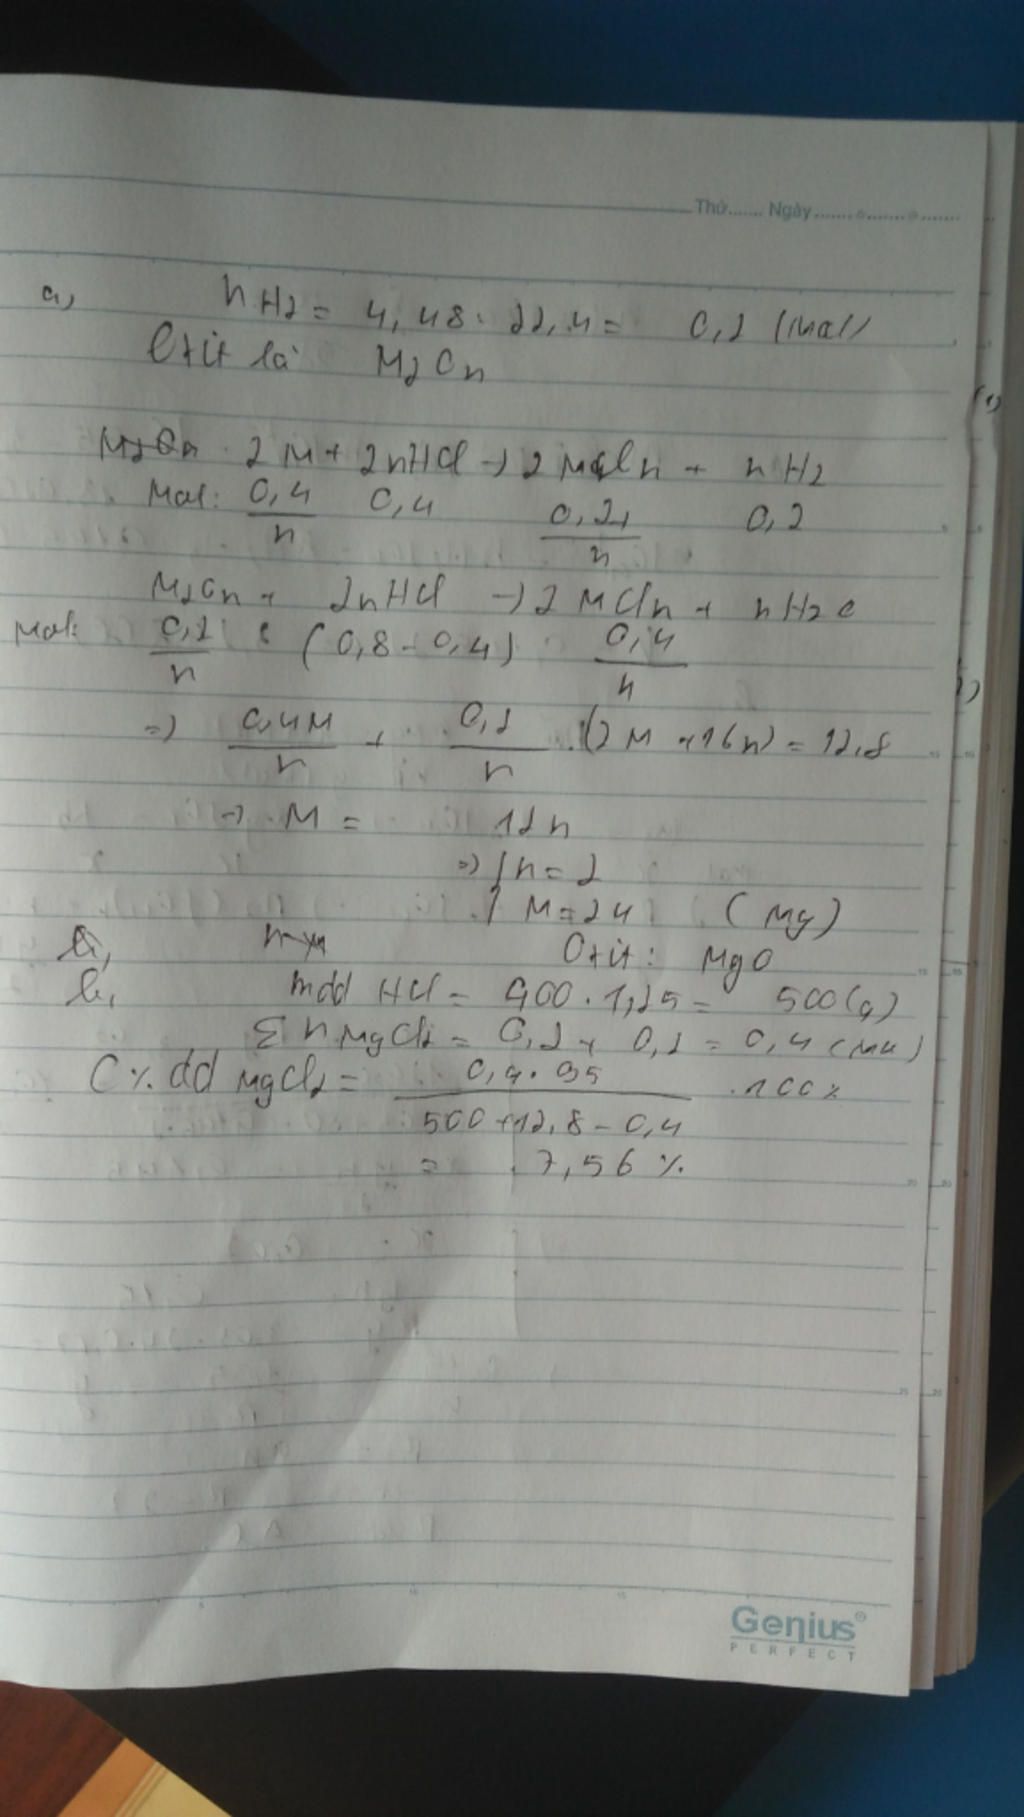 Thứ....... Ngày.......
a, nH2 = 4,48 : 22,4 = 0,2 (mol)
Oxit là M2On
M2On 2M + 2nHCl → 2MCln + nH2
Mol: 0,4/n 0,4 0,4/n 0,2
M2On + 2nHCl → 2MCln + nH2O
Mol: 0,2/n ← (0,8 - 0,4) 0,4/n
=) 0,4M/n + 0,2/n . (2M + 16n) = 12,8
→ M = 12n
=) n = 2
M = 24 (Mg)
Oxit: MgO
b, mdd HCl = 400 . 1,25 = 500(g)
Σ nMgCl2 = 0,2 + 0,2 = 0,4 (mol)
C% dd MgCl2 = 0,4.95 / 500 + 12,8 - 0,4 . 100%
= 7,56 %
Genius
PERFECT